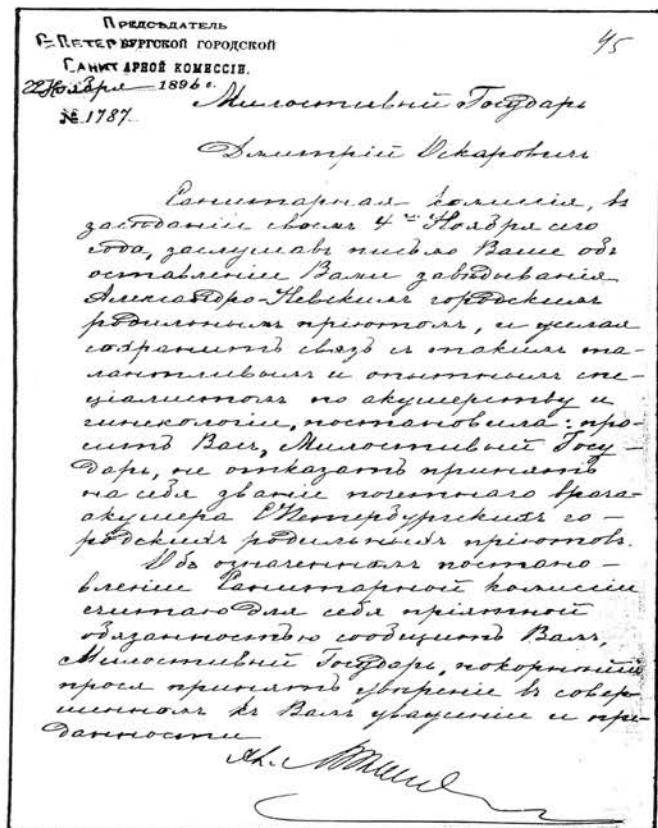 Предсѣдатель
С=Петербургской городской
Санитарной комиссіи.
22 Ноября 1896 г.
№ 1787
45
Милостивый Государь
Дмитрій Оскаровичъ
Санитарная комиссія, въ
засѣданіи своемъ 4го Ноября сего
года, заслушавъ письмо Ваше объ
оставленіи Вами завѣдыванія
Александро-Невскимъ городскимъ
родильнымъ пріютомъ, и желая
сохранить связь съ такимъ та-
лантливымъ и опытнымъ спе-
ціалистомъ по акушерству и
гинекологіи, постановила: про-
сить Васъ, Милостивый Госу-
дарь, не отказать принять
на себя званіе почетнаго врача-
акушера СПетербургскихъ го-
родскихъ родильныхъ пріютовъ.
Объ означенномъ постано-
вленіи Санитарной комиссіи
считаю для себя пріятной
обязанностью сообщить Вамъ,
Милостивый Государь, покорнѣйше
прося принять увѣреніе въ совер
шенномъ къ Вамъ уваженіи и пре
данности